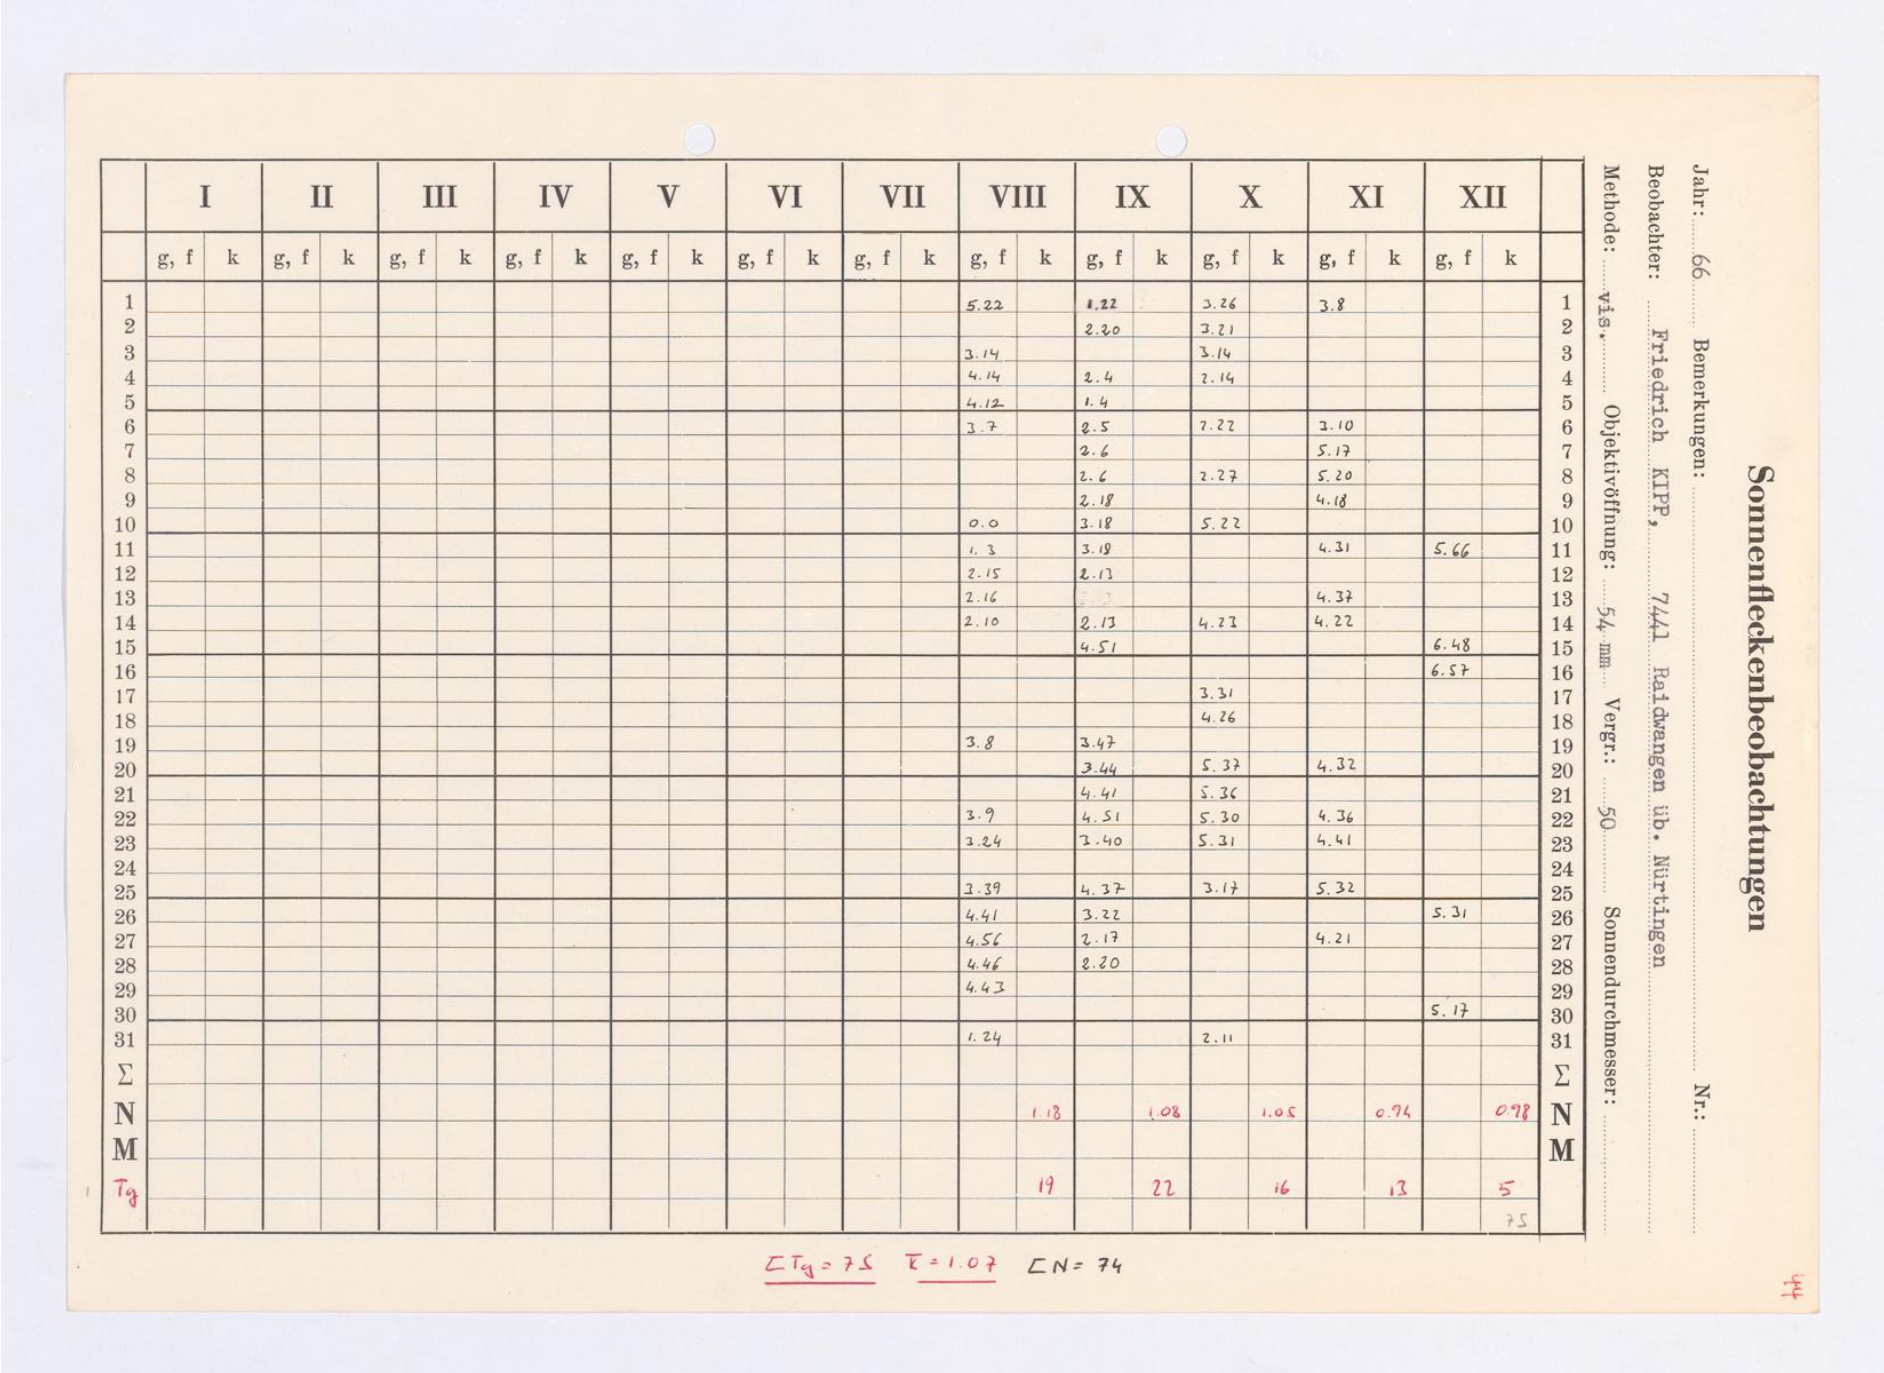 Sonnenfleckenbeobachtungen
Jahr: 66 Bemerkungen: Nr.:
Beobachter: Friedrich KIPP, 7441 Raidwangen üb. Nürtingen
Methode: vis. Objektivöffnung: 54 mm Vergr.: 50 Sonnendurchmesser:
I II III IV V VI VII VIII IX X XI XII
g, f k g, f k g, f k g, f k g, f k g, f k g, f k g, f k g, f k g, f k g, f k g, f k
1 5.22 1.22 3.26 3.8 1
2 2.20 3.21 2
3 3.14 3.14 3
4 4.14 2.4 2.14 4
5 4.12 1.4 5
6 3.7 2.5 2.22 3.10 6
7 2.6 5.17 7
8 2.6 2.27 5.20 8
9 2.18 4.18 9
10 0.0 3.18 5.22 10
11 1.3 3.18 4.31 5.66 11
12 2.15 2.13 12
13 2.16 4.37 13
14 2.10 2.13 4.23 4.22 14
15 4.51 6.48 15
16 6.57 16
17 3.31 17
18 4.26 18
19 3.8 3.47 19
20 3.44 5.37 4.32 20
21 4.41 5.36 21
22 3.9 4.51 5.30 4.36 22
23 3.24 3.40 5.31 4.41 23
24 24
25 3.39 4.37 3.17 5.32 25
26 4.41 3.22 5.31 26
27 4.56 2.17 4.21 27
28 4.46 2.20 28
29 4.43 29
30 5.17 30
31 1.24 2.11 31
Σ Σ
N 1.18 1.08 1.05 0.94 0.98 N
M M
Tg 19 22 16 13 5
75
ΣTg = 75 k̅ = 1.07 ΣN = 74
44